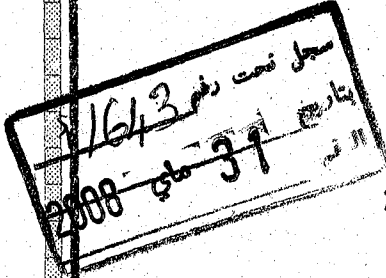 سجل تحت رقم 1643
بتاريخ
31 ماي 2008